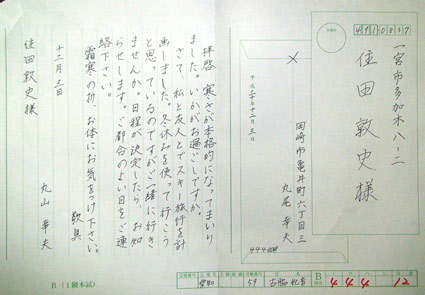 491 0837
一宮市多加木八ー二
住田敦史様
岡崎市亀井町六丁目三
丸尾幸夫
平成二十年十二月三日
444
拝啓 寒さが本格的になってまいり
ました。いかがお過ごしですか。
さて、私と友人とでスキー旅行を計
画しました。冬休みを使って行こう
と思っているのですがご一緒に行き
ませんか。日程が決定したら、お知
らせします。ご都合のよい日をご連
絡下さい。
霜寒の折、お体にお気をつけ下さい。
敬具
十二月三日
丸山幸夫
住田敦史様
B(1級本試)
59
B
444 12